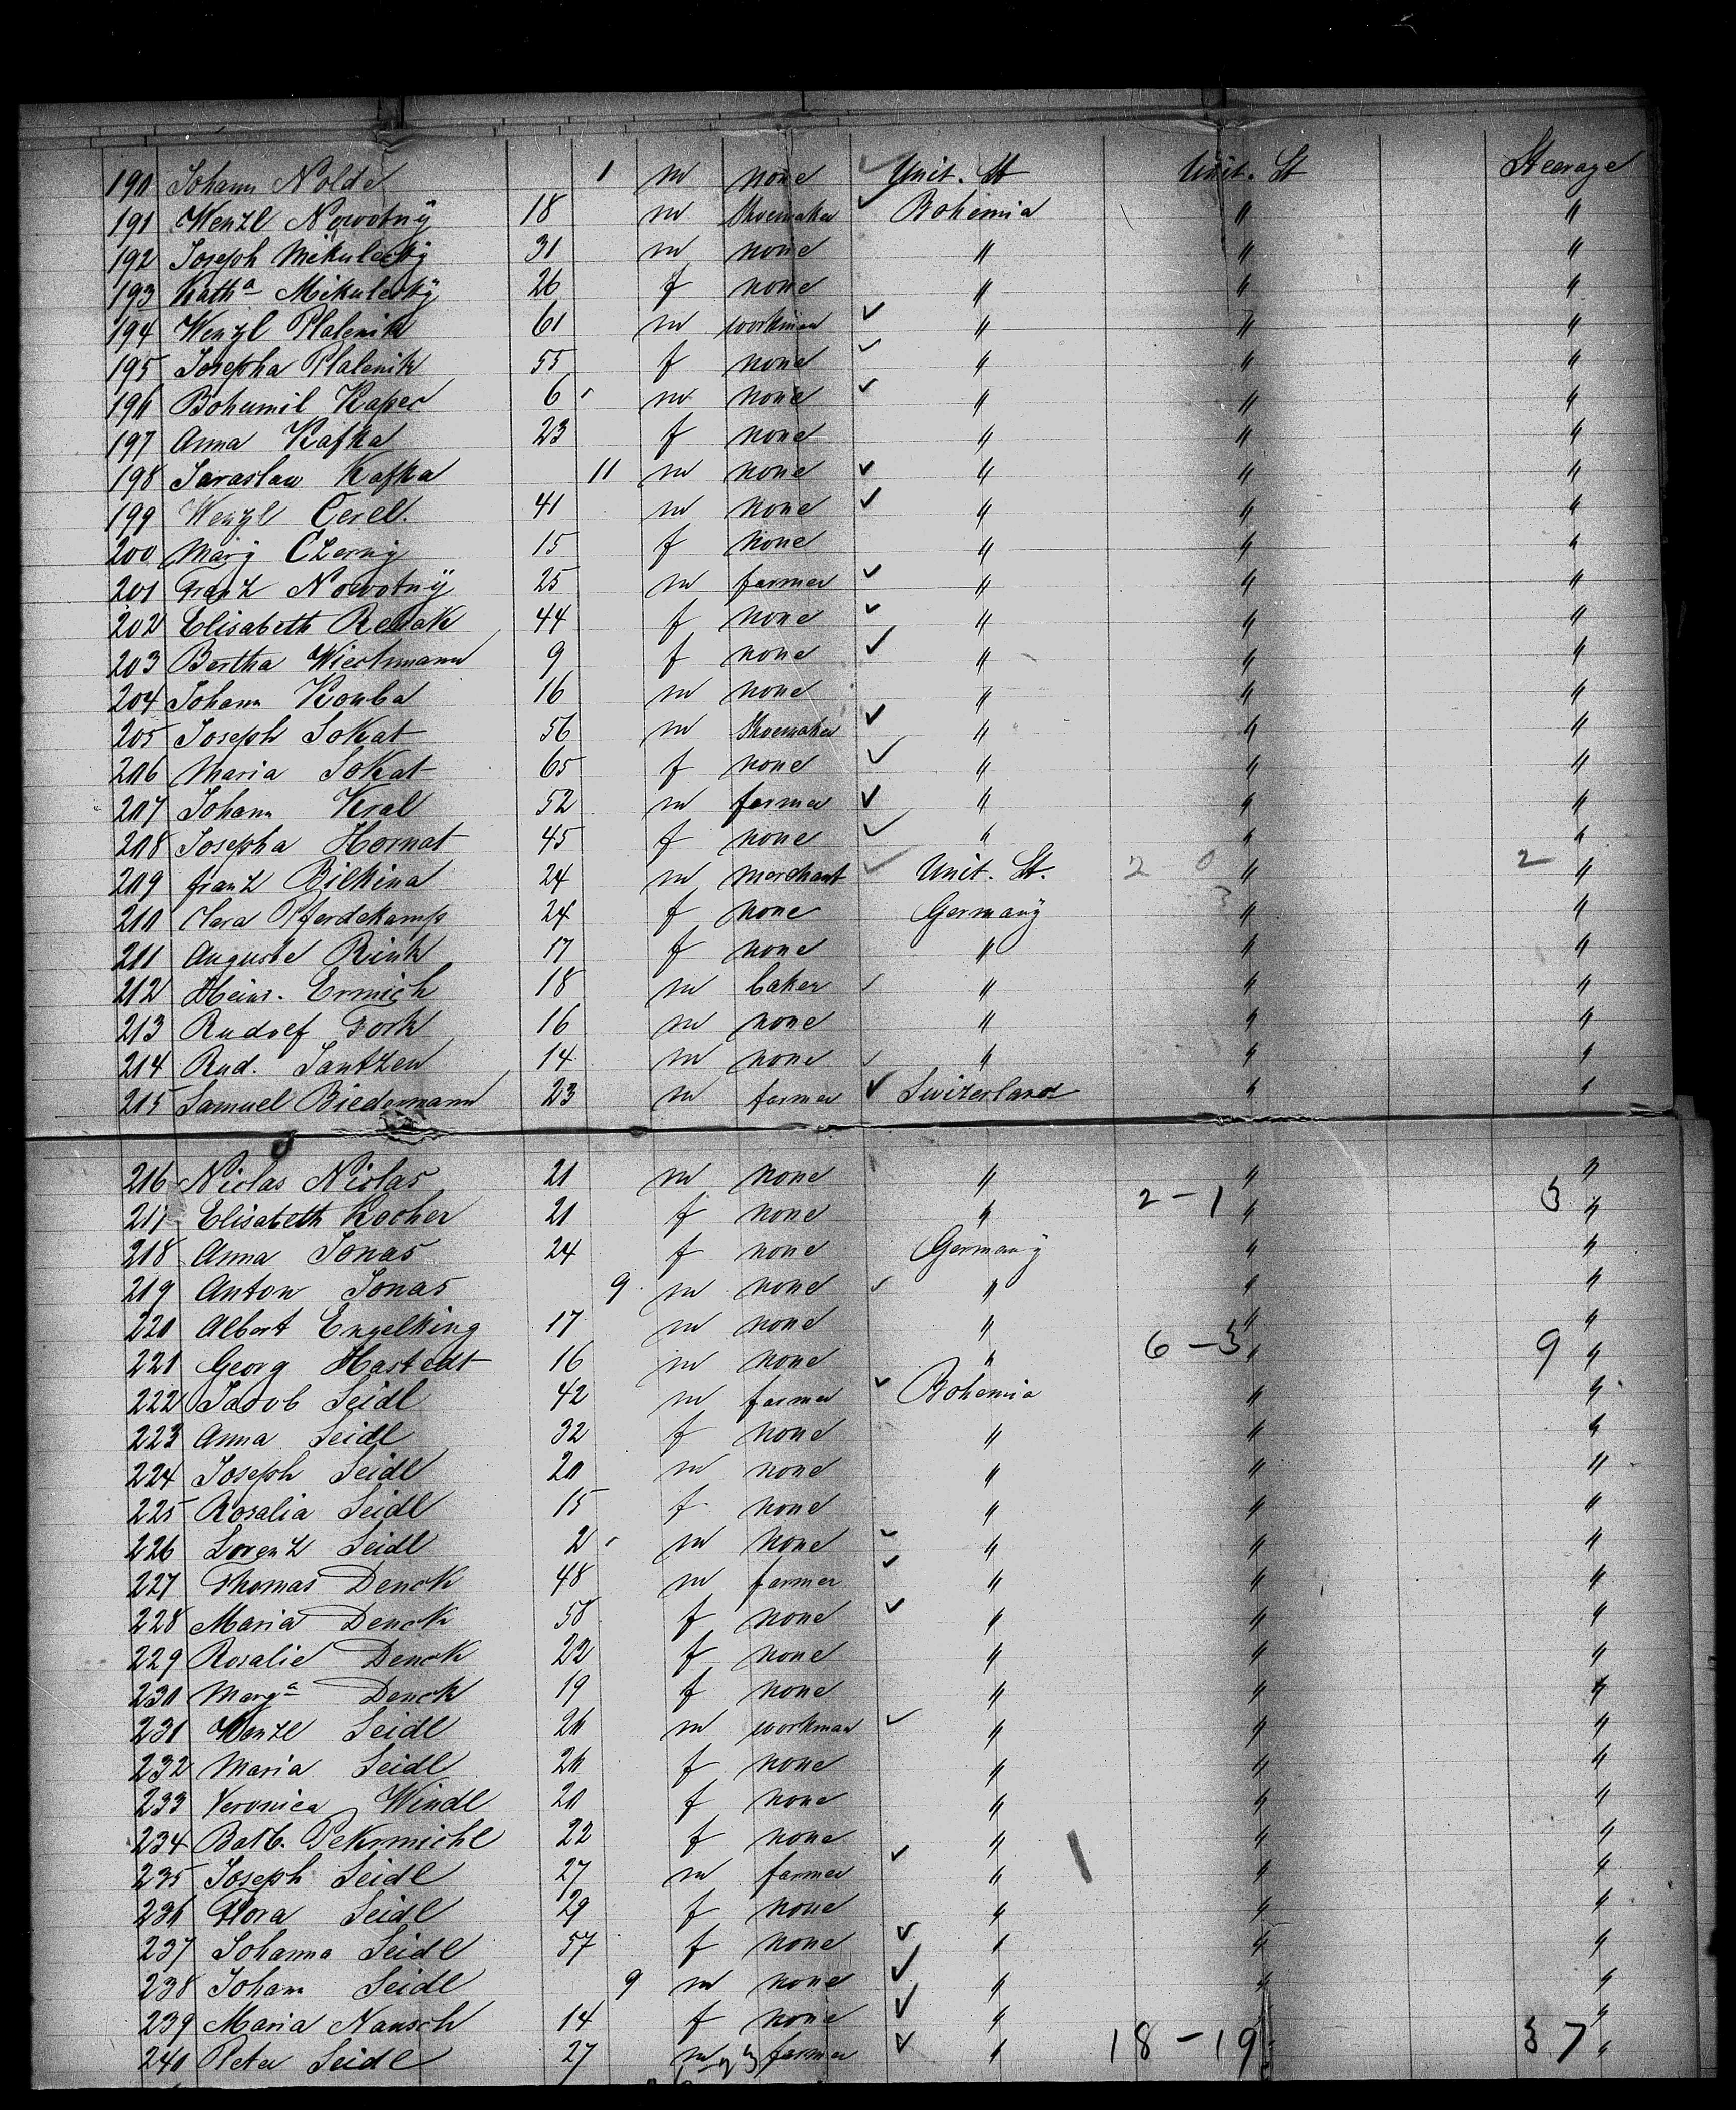 190 Johann Nolde 1 m none ✓ Unit. St Unit. St Steerage
191 Wenzl Nowotnÿ 18 m Shoemaker ✓ Bohemia " "
192 Joseph Mikuleckÿ 31 m none " " "
193 Kath<sup>a</sup> Mikuleckÿ 26 f none " " "
194 Wenzl Plalenik 61 m workman ✓ " " "
195 Josepha Plalenik 55 f none ✓ " " "
196 Bohumil Kaper 6 m none ✓ " " "
197 Anna Kafka 23 f none " " "
198 Jaraslaw Kafka 11 m none ✓ " " "
199 Wenzl Cerel. 41 m none ✓ " " "
200 Marÿ Czernÿ 15 f none " " "
201 Franz Nowotnÿ 25 m farmer ✓ " " "
202 Elisabeth Resak 44 f none ✓ " " "
203 Bertha Wiestmann 9 f none ✓ " " "
204 Johann Kouba 16 m none " " "
205 Joseph Sokat 56 m Shoemaker ✓ " " "
206 Maria Sokat 65 f none ✓ " " "
207 Johann Kral 52 m farmer ✓ " " "
208 Josepha Hornat 45 f none ✓ " " "
209 Franz Bilkina 24 m merchant ✓ Unit. St. 2 0 " 2 "
210 Clara Pferdekamp 24 f none Germanÿ 3 " "
211 Auguste Rink 17 f none " " "
212 Heinr. Ermich 18 m baker ✓ " " "
213 Rudolf Tork 16 m none " " "
214 Rud. Jantzen 14 m none ✓ " " "
215 Samuel Biedermann 23 m farmer ✓ Swizerland " "
216 Niclas Niclas 21 m none " " "
217 Elisabeth Kocher 21 f none " 2-1 " 3 "
218 Anna Jonas 24 f none Germanÿ " "
219 Anton Jonas 9 m none ✓ " " "
220 Albert Engelking 17 m none " " "
221 Georg Hastedt 16 m none " 6-3 " 9 "
222 Jacob Seidl 42 m farmer ✓ Bohemia " "
223 Anna Seidl 32 f none " " "
224 Joseph Seidl 20 m none " " "
225 Rosalia Seidl 15 f none " " "
226 Lorenz Seidl 2 m none ✓ " " "
227 Thomas Denck 48 m farmer ✓ " " "
228 Maria Denck 58 f none ✓ " " "
229 Rosalie Denck 22 f none " " "
230 Marg<sup>a</sup> Denck 19 f none " " "
231 Wenzl Seidl 26 m workman ✓ " " "
232 Maria Seidl 20 f none " " "
233 Veronica Windl 20 f none " " "
234 Barb. Pekrmichl 22 f none " " "
235 Joseph Seidl 27 m farmer ✓ " " "
236 Flora Seidl 29 f none " " "
237 Johanna Seidl 57 f none ✓ " " "
238 Johann Seidl 9 m none ✓ " " "
239 Maria Nausch 14 f none ✓ " " "
240 Peter Seidl 27 m farmer ✓ " 18-19 " 37 "